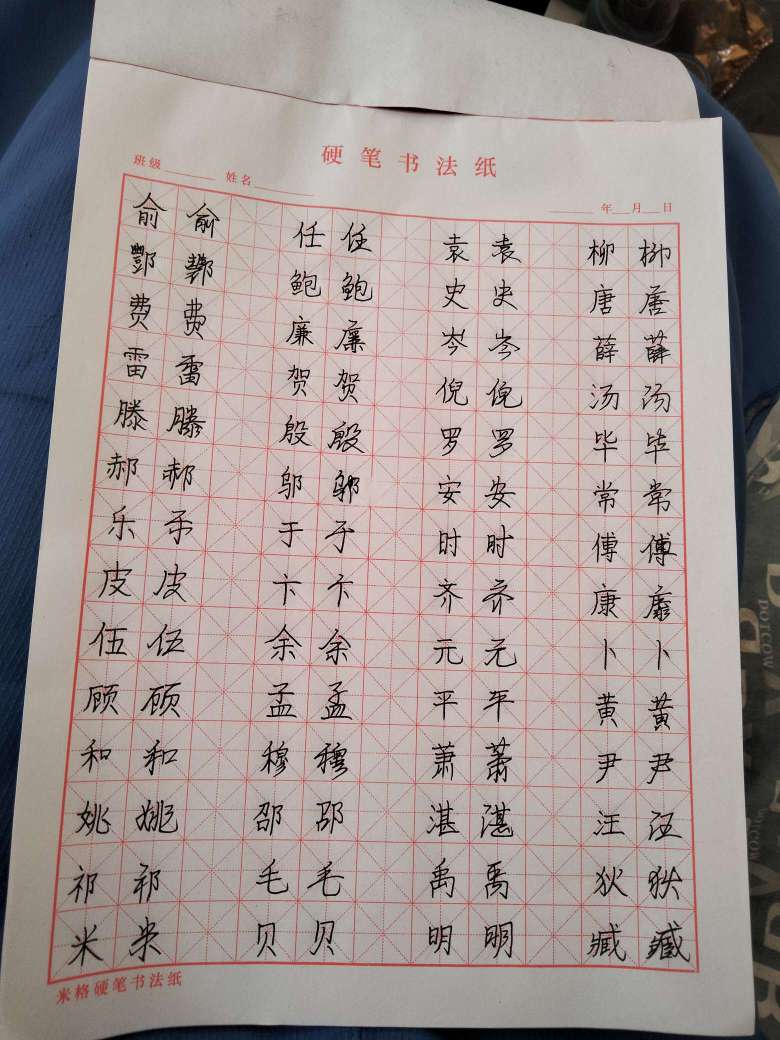 硬笔书法纸
班级 姓名 年 月 日
俞 俞 任 任 袁 袁 柳 柳
酆 酆 鲍 鲍 史 史 唐 唐
费 费 廉 廉 岑 岑 薛 薛
雷 雷 贺 贺 倪 倪 汤 汤
滕 滕 殷 殷 罗 罗 毕 毕
郝 郝 邬 邬 安 安 常 常
乐 乐 于 于 时 时 傅 傅
皮 皮 卞 卞 齐 齐 康 康
伍 伍 余 余 元 元 卜 卜
顾 顾 孟 孟 平 平 黄 黄
和 和 穆 穆 萧 萧 尹 尹
姚 姚 邵 邵 湛 湛 汪 汪
祁 祁 毛 毛 禹 禹 狄 狄
米 米 贝 贝 明 明 臧 臧
米格硬笔书法纸